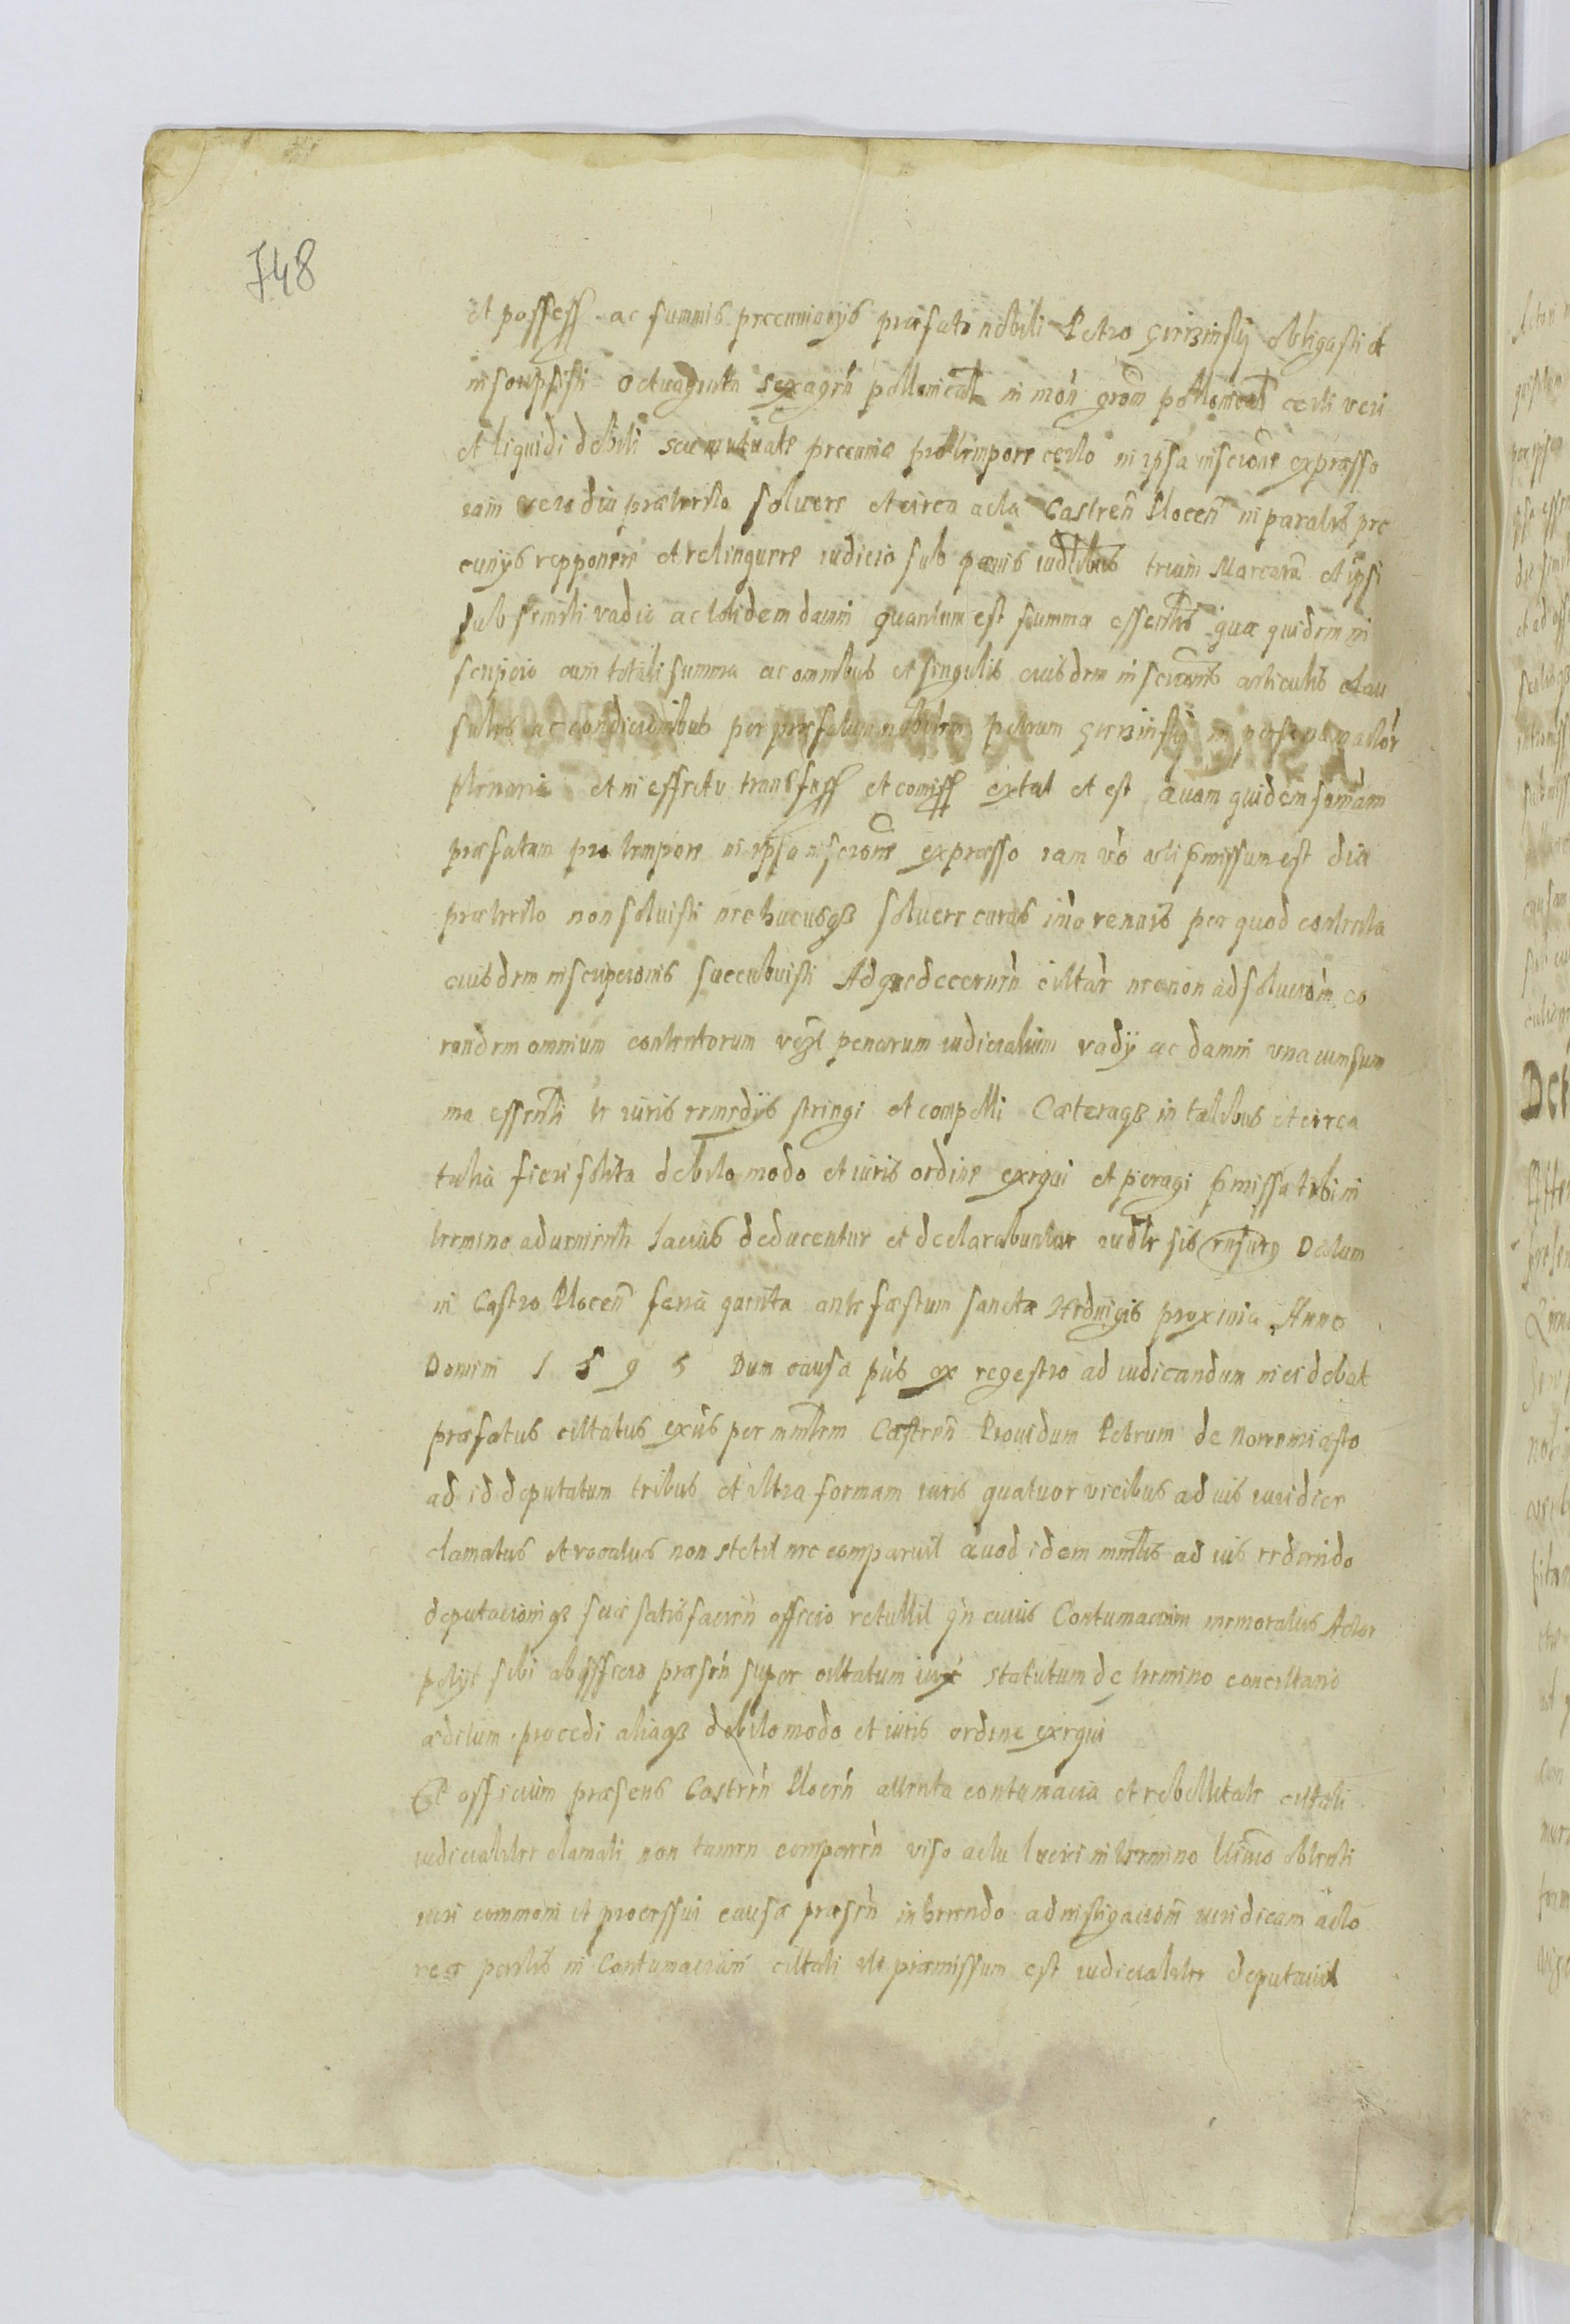 748
et possess ac summis pecuniarys præfato nobili Petro Gerzinsky obligasti et
inscripsisti octuaginta sexagen pollonical in mon grom pollonical certi veri
et liquidi debiti seu mutuate pecuniæ pro tempore certo in ipsa inscrione expresso
iam vero diu præterito soluere et circa acta Castren Plocen in paratis pec
cunys repponere et relinquere iudicio sub pænis iudlibus trium Marcaru et ipsi
sub simili vadio ac totidem damni quantum est summa essentlis quæ quidem in
scripcio cum totali summa ac omnibus et singulis eiusdem inscrionis articulis clau
sulis ac condicionibus per præfatum nobilem Petrum Gerzinsky in personam actor
plenarie et in effectu transfuss et comiss extat et est Quam quidem somam
præfatam pro tempore in ipsa inscrione expresso iam vo uti pmissum est diu
præterito non soluisti nec hucusqz soluere curas imo renuis per quod contenta
eiusdem inscripcionis succubuisti Ad quod decernen cittar necnon ad solucion eo
rundem omnium contentorum vczt penarum iudicialium vadÿ ac damni vna cum sum
ma essentli te iuris remedÿs stringi et compelli Cæteraqz in talibus et circa
talia fieri solita debito modo et iuris ordine exequi et peragi pmissa tibi in
termino adueniente lacius deducentur et declarabuntur iudlr sis rnsurg Datum
in Castro Plocen feria quinta ante fæstum sanctæ Heduigis proxima Anno
Domini 1 5 9 5 Dum causa pns ex regestro ad iudicandum incidebat
præfatus cittatus exns per mnlrem Castren Prouidum Petrum de Nowemiasto
ad id deputatum tribus et vltra formam iuris quatuor vicibus ad ius iuridice
clamatus et vocatus non stetit nec comparuit Quod idem mnlis ad ius reddendo
deputacioniqz suæ satisfacien officio retullit qn cuius Contumaciam memoratus Actor
petyt sibi ab officio præsen super cittatum iuxt statutum de termino concitatorio
æditum procedi aliaqz debito modo et iuris ordine exequi
Et officium præsens Castren Plocen attenta contumacia et rebellitate cittati
iudicialiter clamati non tamen comparen viso actu lucri in termino Umo obtenti
iuri commoni et processui causæ præsen inherendo ad instigacionem iuridicam acto
rea pentis in Contumaciam cittati ut præmissum est iudicialiter deputauit